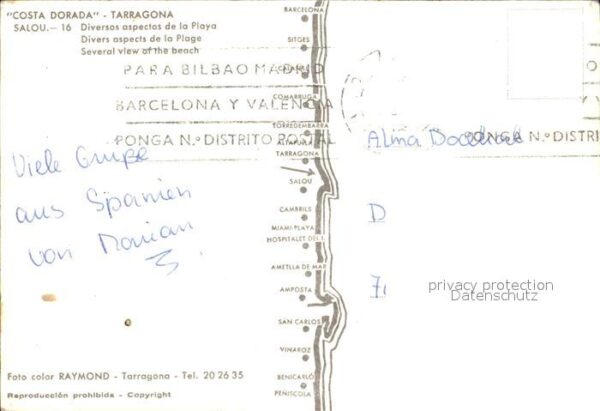 "COSTA DORADA" - TARRAGONA
SALOU.- 16 Diversos aspectos de la Playa
Divers aspects de la Plage
Several view of the beach
PARA BILBAO MADRID
BARCELONA Y VALENCIA
PONGA N.º DISTRITO POSTAL
PONGA N.º DISTRI
Viele Grüße
aus Spanien
von
Alma
D
privacy protection
Datenschutz
BARCELONA
SITGES
CALAFELL
COMARRUGA
TORREDEMBARRA
ALTAFULLA
TARRAGONA
SALOU
CAMBRILS
MIAMI-PLAYA
HOSPITALET DEL I.
AMETLLA DE MAR
AMPOSTA
SAN CARLOS
VINAROZ
BENICARLO
PEÑISCOLA
Foto color RAYMOND - Tarragona - Tel. 20 26 35
Reproducción prohibida - Copyright